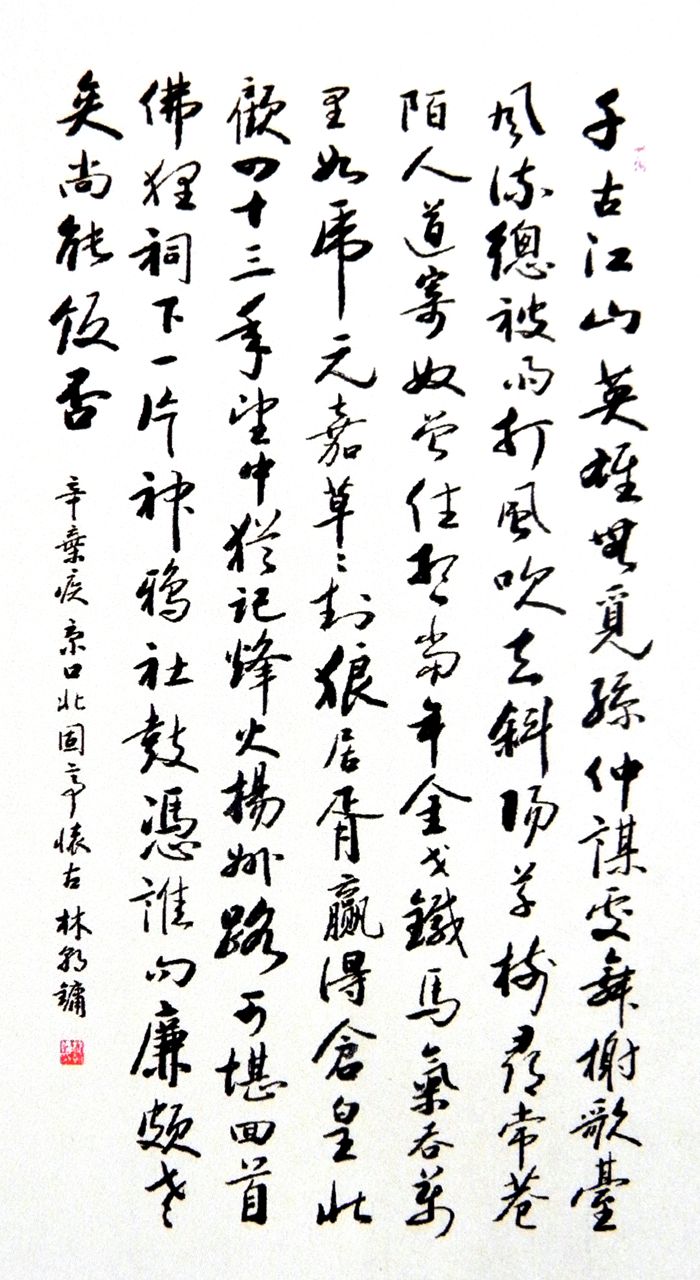 千古江山英雄無覓孫仲謀處舞榭歌臺
風流總被雨打風吹去斜陽草樹尋常巷
陌人道寄奴曾住想當年金戈鐵馬氣吞萬
里如虎元嘉草々封狼居胥贏得倉皇北
顧四十三年望中猶記烽火揚州路可堪回首
佛狸祠下一片神鴉社鼓憑誰問廉頗老
矣尚能飯否
辛棄疾京口北固亭懷古 林鏞